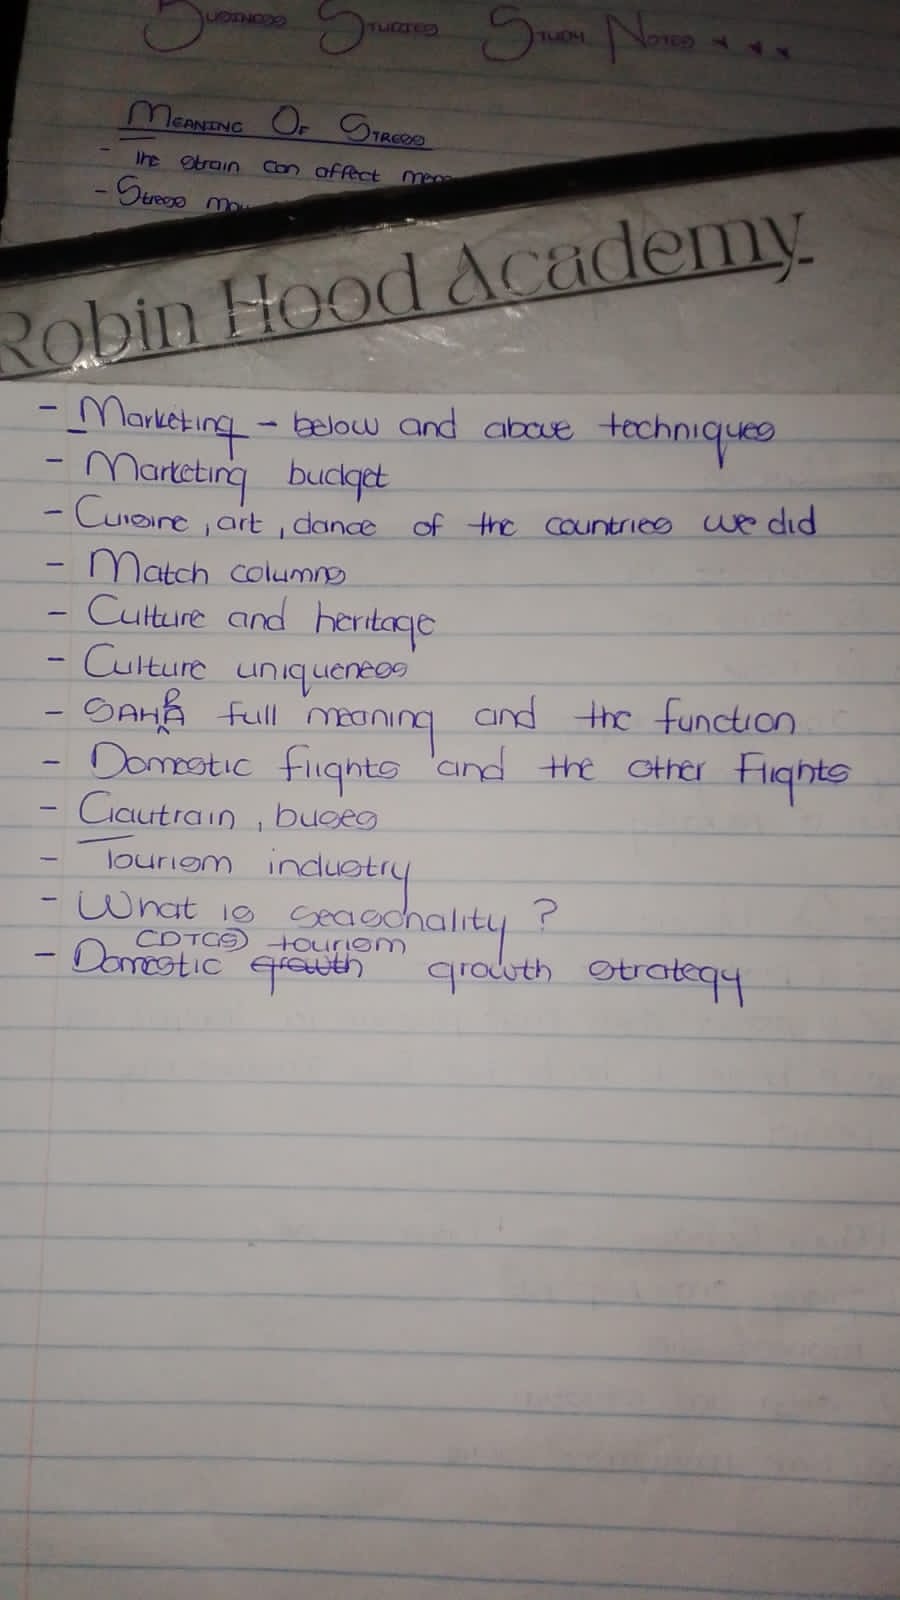 Business Studies Study Notes
Meaning Of Stress
- The strain can affect
- Stress
Robin Hood Academy
- Marketing - below and above techniques
- Marketing budget
- Cuisine, art, dance of the countries we did
- Match columns
- Culture and heritage
- Culture uniqueness
- SAHRA full meaning and the function
- Domestic flights and the other flights
- Gautrain, buses
- Tourism industry
- What is seasonality?
- Domestic growth (DTGS) tourism growth strategy